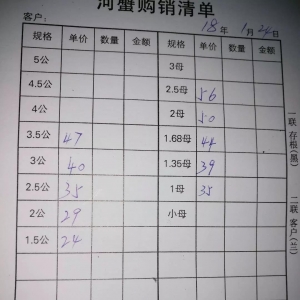 河蟹购销清单
客户: 18年1月24日
规格 单价 数量 金额 规格 单价 数量 金额
5公 3母
4.5公 2.5母 56
4公 2母 50
3.5公 47 1.68母 44
3公 40 1.35母 39
2.5公 35 1母 35
2公 29 小母
1.5公 24
一联 存根(黑)
二联 客户(兰)